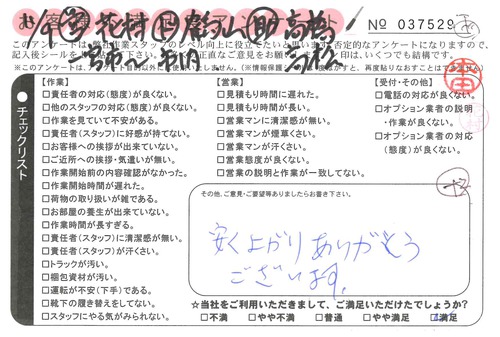 № 037529
このアンケートは弊社作業スタッフのレベル向上に役立てたいと思います。否定的なアンケートになりますので、
いくつでも結構です。
チェックリスト
【作業】
□責任者の対応(態度)が良くない。
□他のスタッフの対応(態度)が良くない。
□作業を見ていて不安がある。
□責任者(スタッフ)に好感が持てない。
□お客様への挨拶が出来ていない。
□ご近所への挨拶・気遣いが無い。
□作業開始前の内容確認がなかった。
□作業開始時間が遅れた。
□荷物の取り扱いが雑である。
□お部屋の養生が出来ていない。
□作業時間が長すぎる。
□責任者(スタッフ)に清潔感が無い。
□責任者(スタッフ)が汗くさい。
□トラックが汚い。
□梱包資材が汚い。
□運転が不安(下手)である。
□靴下の履き替えをしてない。
□スタッフにやる気がみられない。
【営業】
□見積もり時間に遅れた。
□見積もり時間が長い。
□営業マンに清潔感が無い。
□営業マンが煙草くさい。
□営業マンが汗くさい。
□営業態度が良くない。
□営業の説明と作業が一致してない。
【受付・その他】
□電話の対応が良くない。
□オプション業者の説明
・作業が良くない。
□オプション業者の対応
(態度)が良くない。
その他、ご意見・ご要望等ありましたらお書き下さい。
安く上がりありがとう
ございます。
☆当社をご利用いただきまして、ご満足いただけたでしょうか?
□不満 □やや不満 □普通 □やや満足 □満足